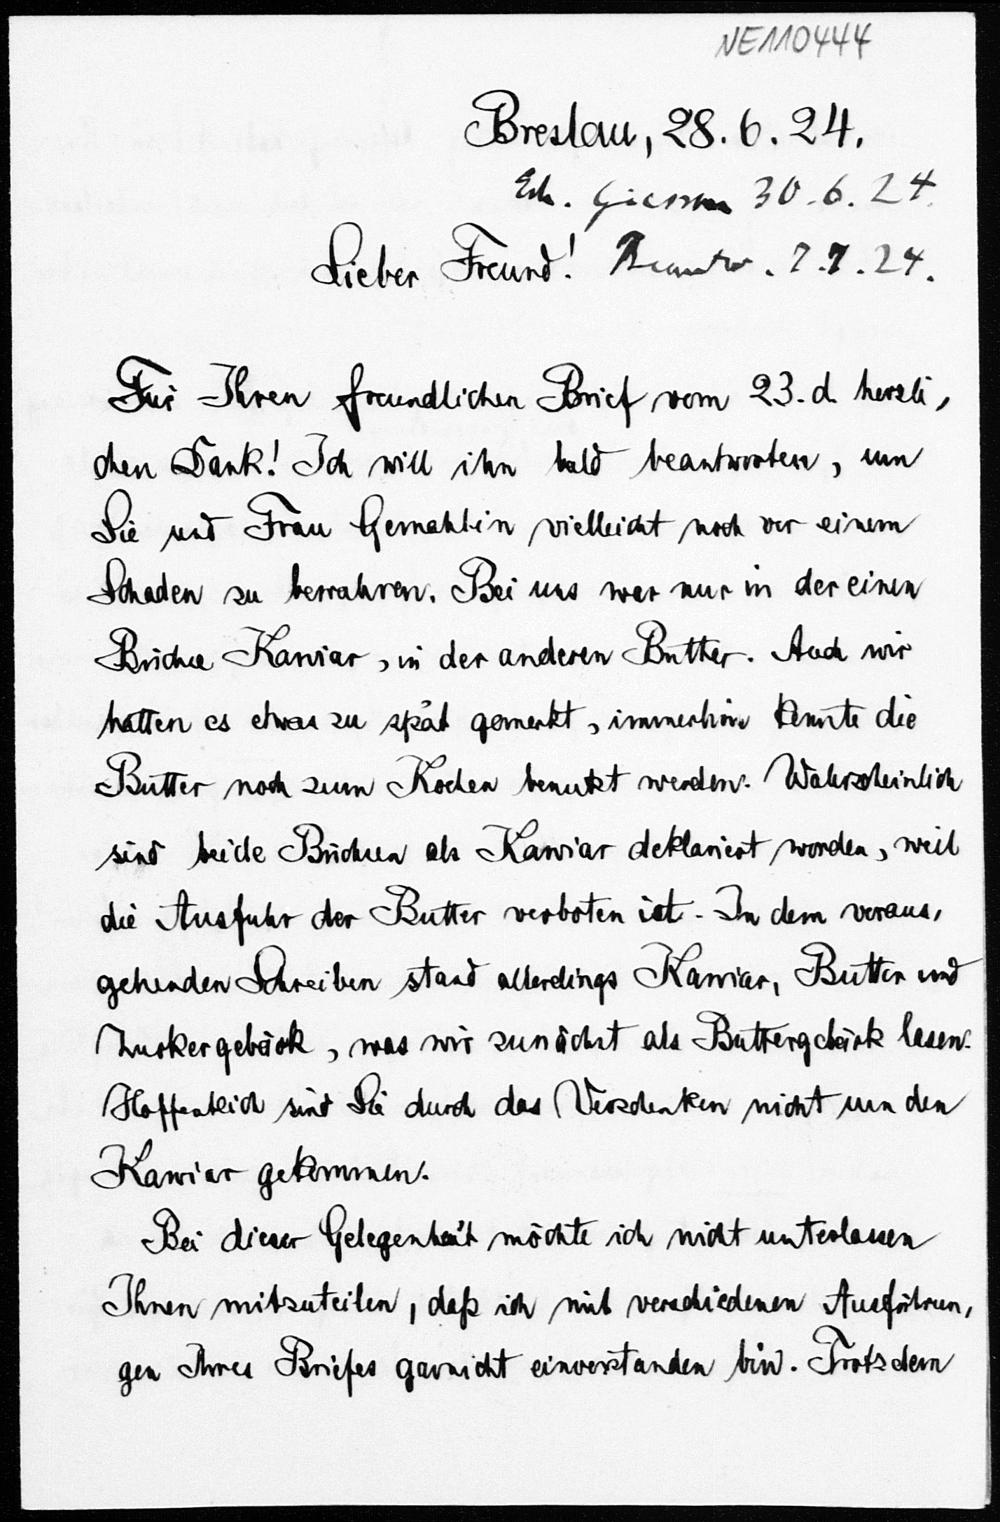 NE110444
Breslau, 28.6.24.
Erh. Giessen 30.6.24.
Lieber Freund! Beantw. 7.7.24.
Für Ihren freundlichen Brief vom 23. d. herzli,
chen Dank! Ich will ihn bald beantworten, um
Sie und Frau Gemahlin vielleicht noch vor einem
Schaden zu bewahren. Bei uns war nur in der einen
Büchse Kaviar, in der anderen Butter. Auch wir
hatten es etwas zu spät gemerkt, immerhin konnte die
Butter noch zum Kochen benutzt werden. Wahrscheinlich
sind beide Büchsen als Kaviar deklariert worden, weil
die Ausfuhr der Butter verboten ist. In dem voraus,
gehenden Schreiben stand allerdings Kaviar, Butter und
Zuckergebäck, was wir zunächst als Buttergebäck lasen.
Hoffentlich sind Sie durch das Verschenken nicht um den
Kaviar gekommen.
Bei dieser Gelegenheit möchte ich nicht unterlassen
Ihnen mitzuteilen, daß ich mit verschiedenen Ausführun,
gen Ihres Briefes garnicht einverstanden bin. Trotzdem